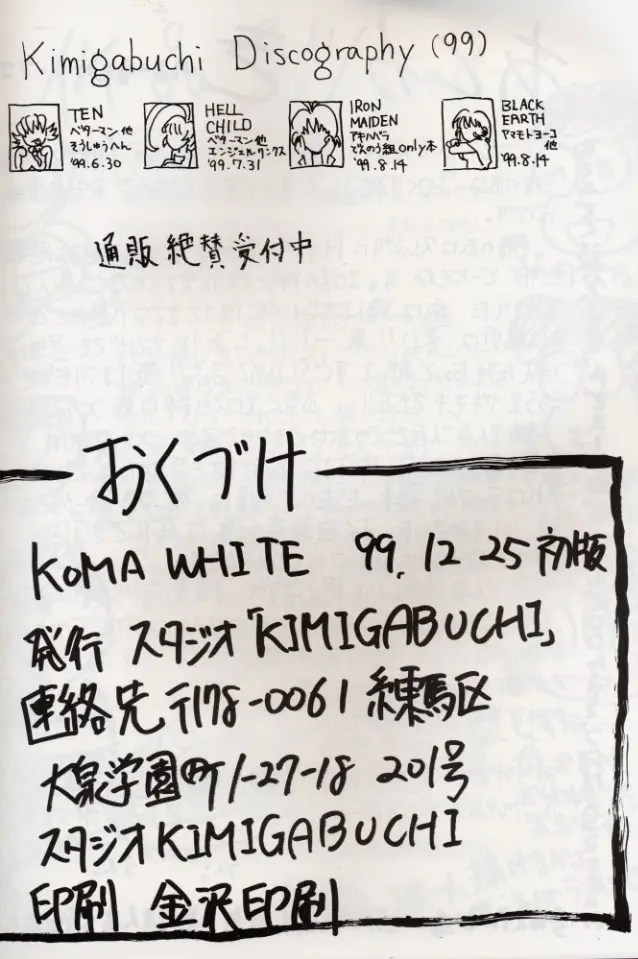 Kimigabuchi Discography (99)
TEN
ベターマン他
そうしゅうへん
'99.6.30
HELL
CHILD
ベターマン他
エンジェルリンクス
'99.7.31
IRON
MAIDEN
アキハバラ
で次のう組only本
'99.8.14
BLACK
EARTH
ヤマモトヨーコ
他
'99.8.14
通販絶賛受付中
おくづけ
KOMA WHITE 99.12 25 初版
発行 スタジオ「KIMIGABUCHI」
連絡先 〒178-0061 練馬区
大泉学園町1-27-18 201号
スタジオKIMIGABUCHI
印刷 金沢印刷